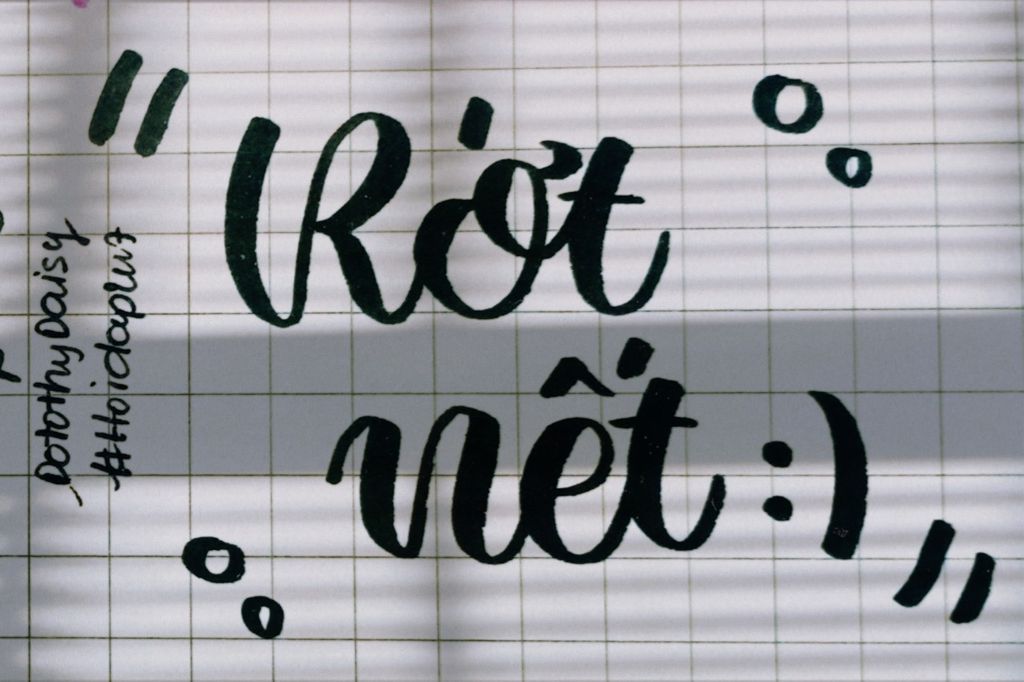 "Rớt
nết :)"
DorothyDaisy
#Hoidap247